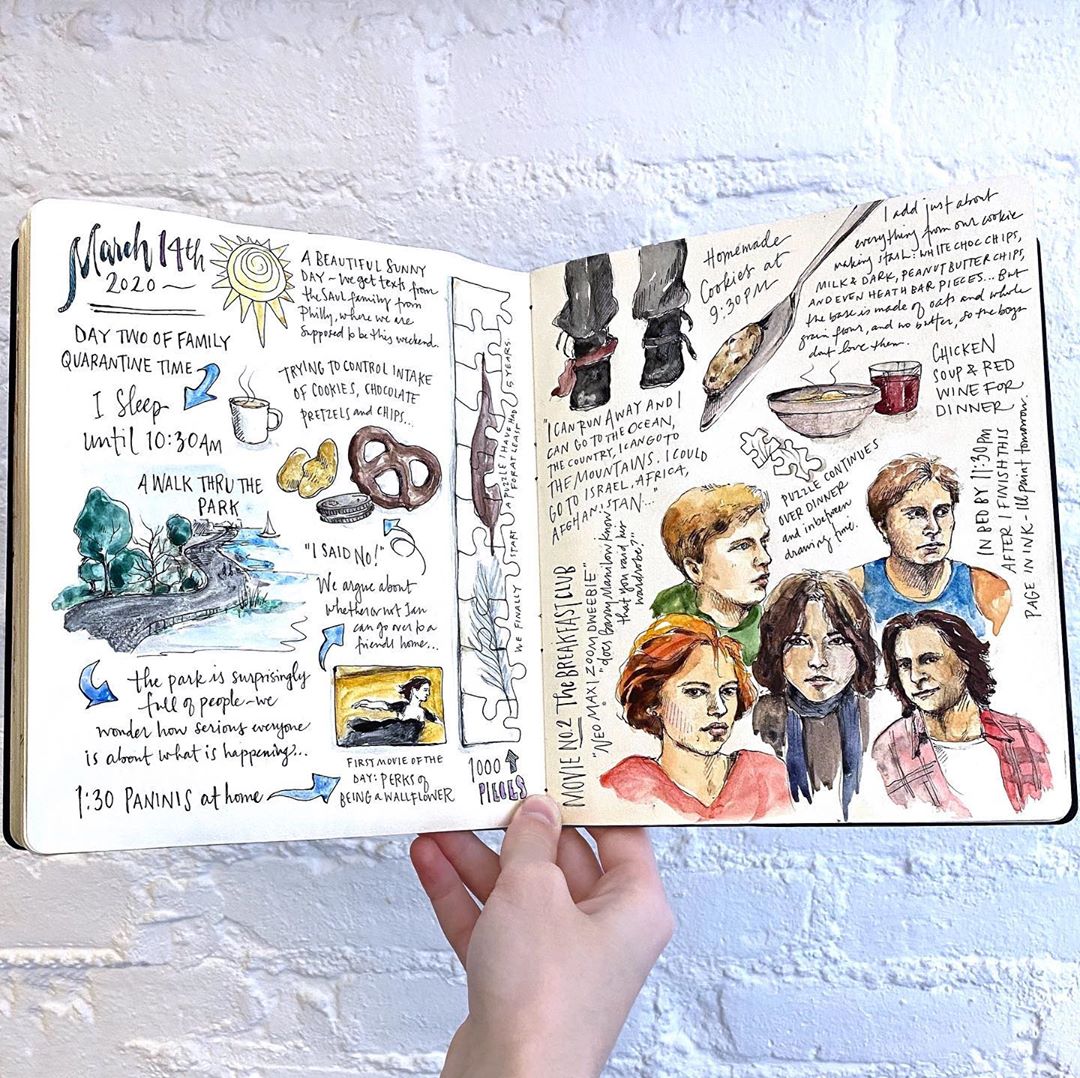 March 14th
2020
A BEAUTIFUL SUNNY
DAY ~ we get texts from
the SAUL family from
Philly, where we are
supposed to be this weekend.
DAY TWO OF FAMILY
QUARANTINE TIME
I Sleep
until 10:30AM
TRYING TO CONTROL INTAKE
OF COOKIES, CHOCOLATE
PRETZELS and CHIPS...
A WALK THRU THE
PARK
"I SAID NO!"
We argue about
whether or not Ian
can go over to a
friends home...
the park is surprisingly
full of people ~ we
wonder how serious everyone
is about what is happening?...
1:30 PANINIS at home
FIRST MOVIE OF THE
DAY: PERKS OF
BEING A WALLFLOWER
WE FINALLY START A PUZZLE I HAVE HAD
FOR AT LEAST 5 YEARS.
1000
PIECES
Homemade
Cookies at
9:30PM
I add just about
everything from our cookie
making stash: WHITE CHOC CHIPS,
MILK & DARK, PEANUT BUTTER CHIPS,
AND EVEN HEATH BAR PIECES... But
the base is made of oats and whole
grain flour, and no butter, so the boys
dont love them.
CHICKEN
SOUP & RED
WINE FOR
DINNER
"I CAN RUN AWAY AND I
CAN GO TO THE OCEAN,
THE COUNTRY, I CAN GO TO
THE MOUNTAINS. I COULD
GO TO ISRAEL, AFRICA,
AFGHANISTAN..."
PUZZLE CONTINUES
OVER DINNER
and inbetween
drawing time.
IN BED BY 11:30PM
AFTER I FINISH THIS
PAGE IN INK ~ I'll paint tomorrow.
MOVIE NO.2 The BREAKFAST CLUB
"NEO MAXI ZOOM DWEEBIE"
"does Barry Manilow know
that you raid his
wardrobe?"